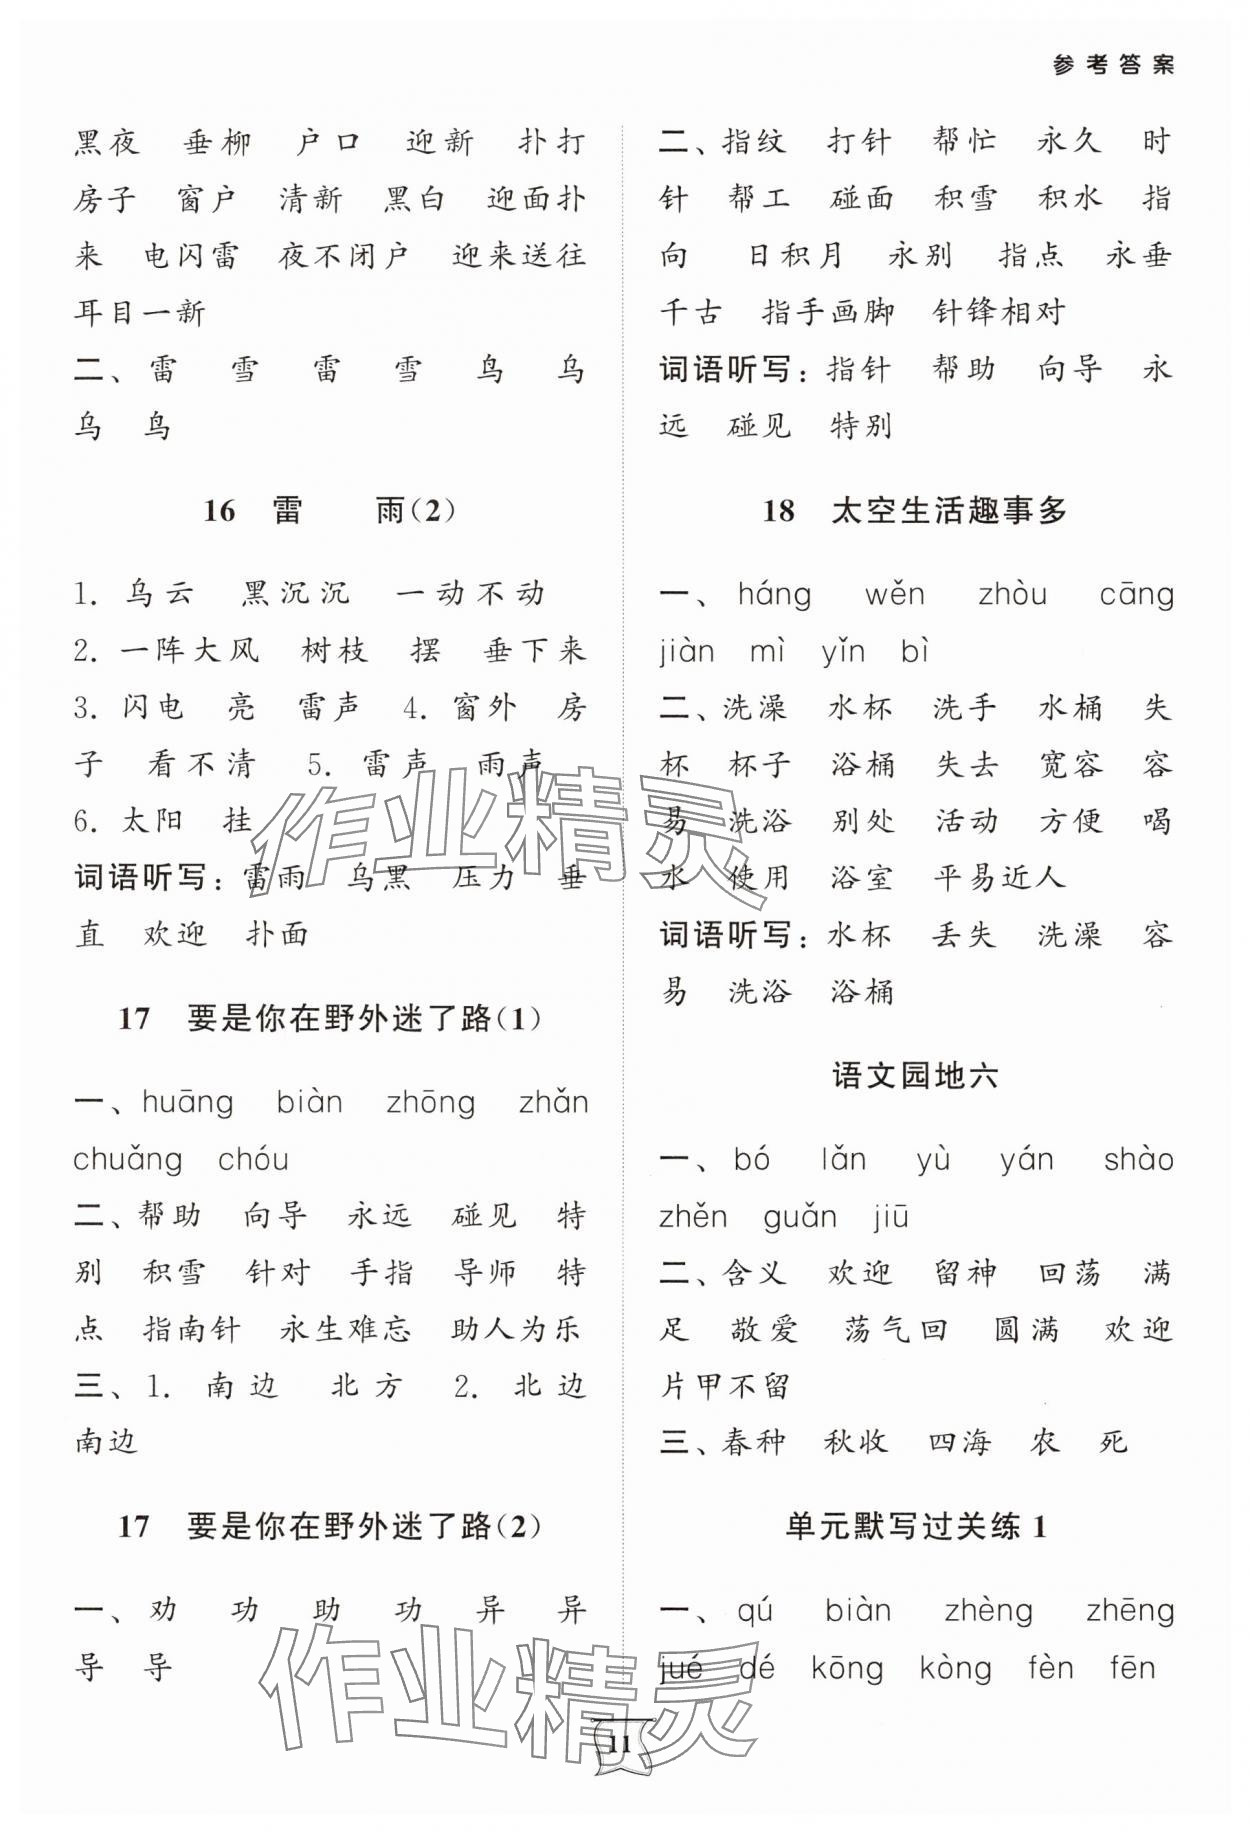 参考答案
黑夜 垂柳 户口 迎新 扑打
房子 窗户 清新 黑白 迎面扑
来 电闪雷 夜不闭户 迎来送往
耳目一新
二、雷 雪 雷 雪 鸟 乌
乌 鸟
16 雷 雨(2)
1. 乌云 黑沉沉 一动不动
2. 一阵大风 树枝 摆 垂下来
3. 闪电 亮 雷声 4. 窗外 房
子 看不清 5. 雷声 雨声
6. 太阳 挂
词语听写:雷雨 乌黑 压力 垂
直 欢迎 扑面
17 要是你在野外迷了路(1)
一、huāng biàn zhōng zhǎn
chuǎng chóu
二、帮助 向导 永远 碰见 特
别 积雪 针对 手指 导师 特
点 指南针 永生难忘 助人为乐
三、1. 南边 北方 2. 北边
南边
17 要是你在野外迷了路(2)
一、劝 功 助 功 异 异
导 导
二、指纹 打针 帮忙 永久 时
针 帮工 碰面 积雪 积水 指
向 日积月 永别 指点 永垂
千古 指手画脚 针锋相对
词语听写:指针 帮助 向导 永
远 碰见 特别
18 太空生活趣事多
一、háng wěn zhòu cāng
jiàn mì yǐn bì
二、洗澡 水杯 洗手 水桶 失
杯 杯子 浴桶 失去 宽容 容
易 洗浴 别处 活动 方便 喝
水 使用 浴室 平易近人
词语听写:水杯 丢失 洗澡 容
易 洗浴 浴桶
语文园地六
一、bó lǎn yù yán shào
zhěn guǎn jiū
二、含义 欢迎 留神 回荡 满
足 敬爱 荡气回 圆满 欢迎
片甲不留
三、春种 秋收 四海 农 死
单元默写过关练1
一、qú biàn zhèng zhēng
jué dé kōng kòng fèn fēn
作业精灵
作业精灵
11